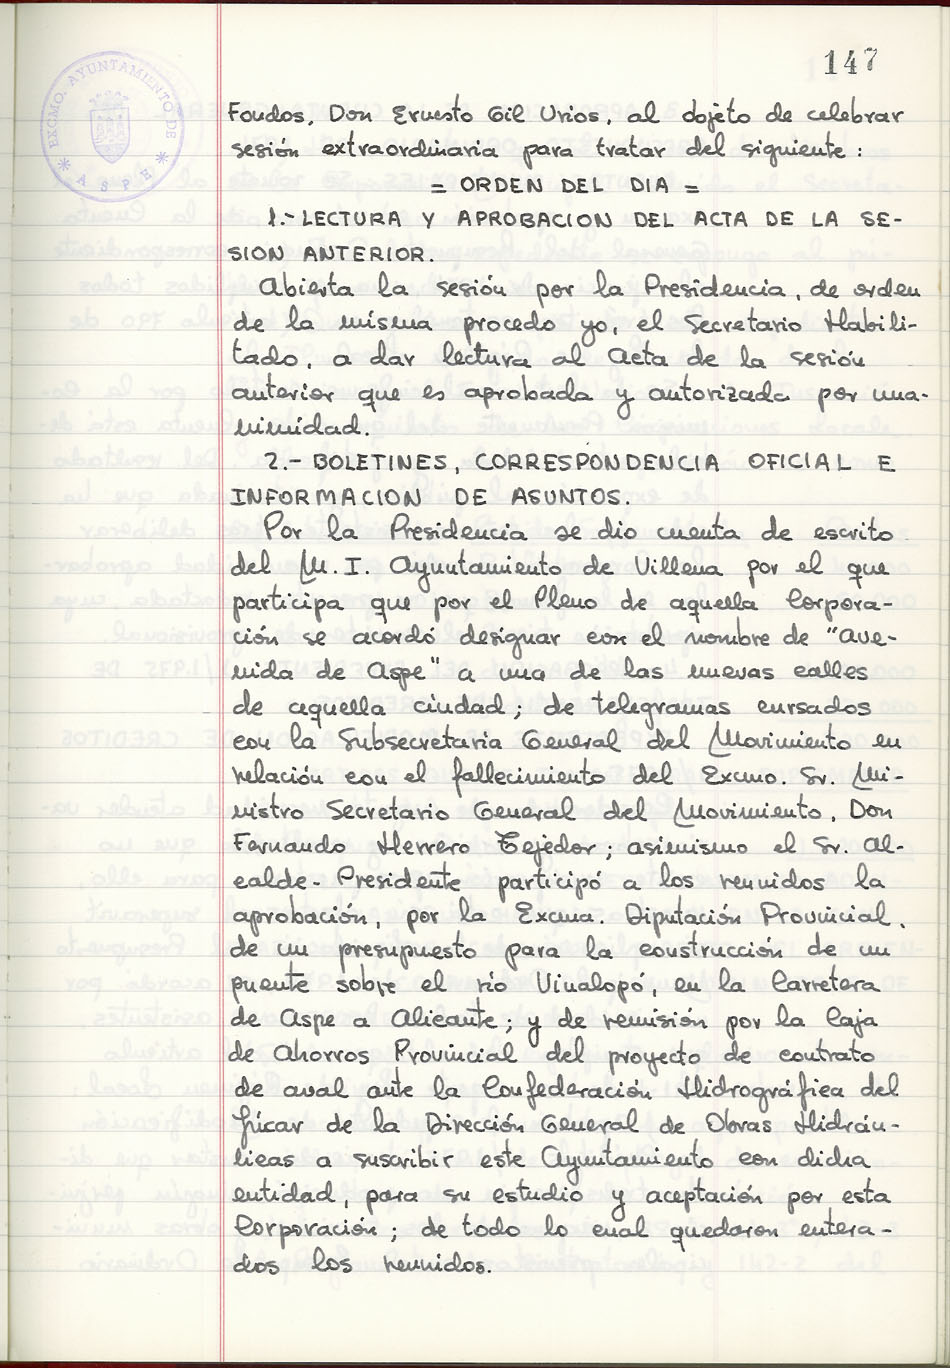 147
EXCMO. AYUNTAMIENTO DE
* ASPE *
Fondos, Don Ernesto Gil Urios, al dojeto de celebrar
sesión extraordinaria para tratar del siguiente :
= ORDEN DEL DIA =
1.- LECTURA Y APROBACION DEL ACTA DE LA SE-
SION ANTERIOR.
Abierta la sesión por la Presidencia, de orden
de la misma procedo yo, el Secretario Habili-
tado, a dar lectura al Acta de la sesión
anterior que es aprobada y autorizada por una-
nimidad.
2.- BOLETINES, CORRESPONDENCIA OFICIAL E
INFORMACION DE ASUNTOS.
Por la Presidencia se dio cuenta de escrito
del M. I. Ayuntamiento de Villena por el que
participa que por el Pleno de aquella Corpora-
ción se acordó designar con el nombre de "Ave-
nida de Aspe" a una de las nuevas calles
de aquella ciudad; de telegramas cursados
con la Subsecretaria General del Movimiento en
relación con el fallecimiento del Excmo. Sr. Mi-
nistro Secretario General del Movimiento, Don
Fernando Herrero Tejedor; asimismo el Sr. Al-
calde-Presidente participó a los reunidos la
aprobación, por la Excma. Diputación Provincial,
de un presupuesto para la construcción de un
puente sobre el río Vinalopó, en la Carretera
de Aspe a Alicante; y de remisión por la Caja
de Ahorros Provincial del proyecto de contrato
de aval ante la Confederación Hidrográfica del
Júcar de la Dirección General de Obras Hidráu-
licas a suscribir este Ayuntamiento con dicha
entidad, para su estudio y aceptación por esta
Corporación; de todo lo cual quedaron entera-
dos los reunidos.